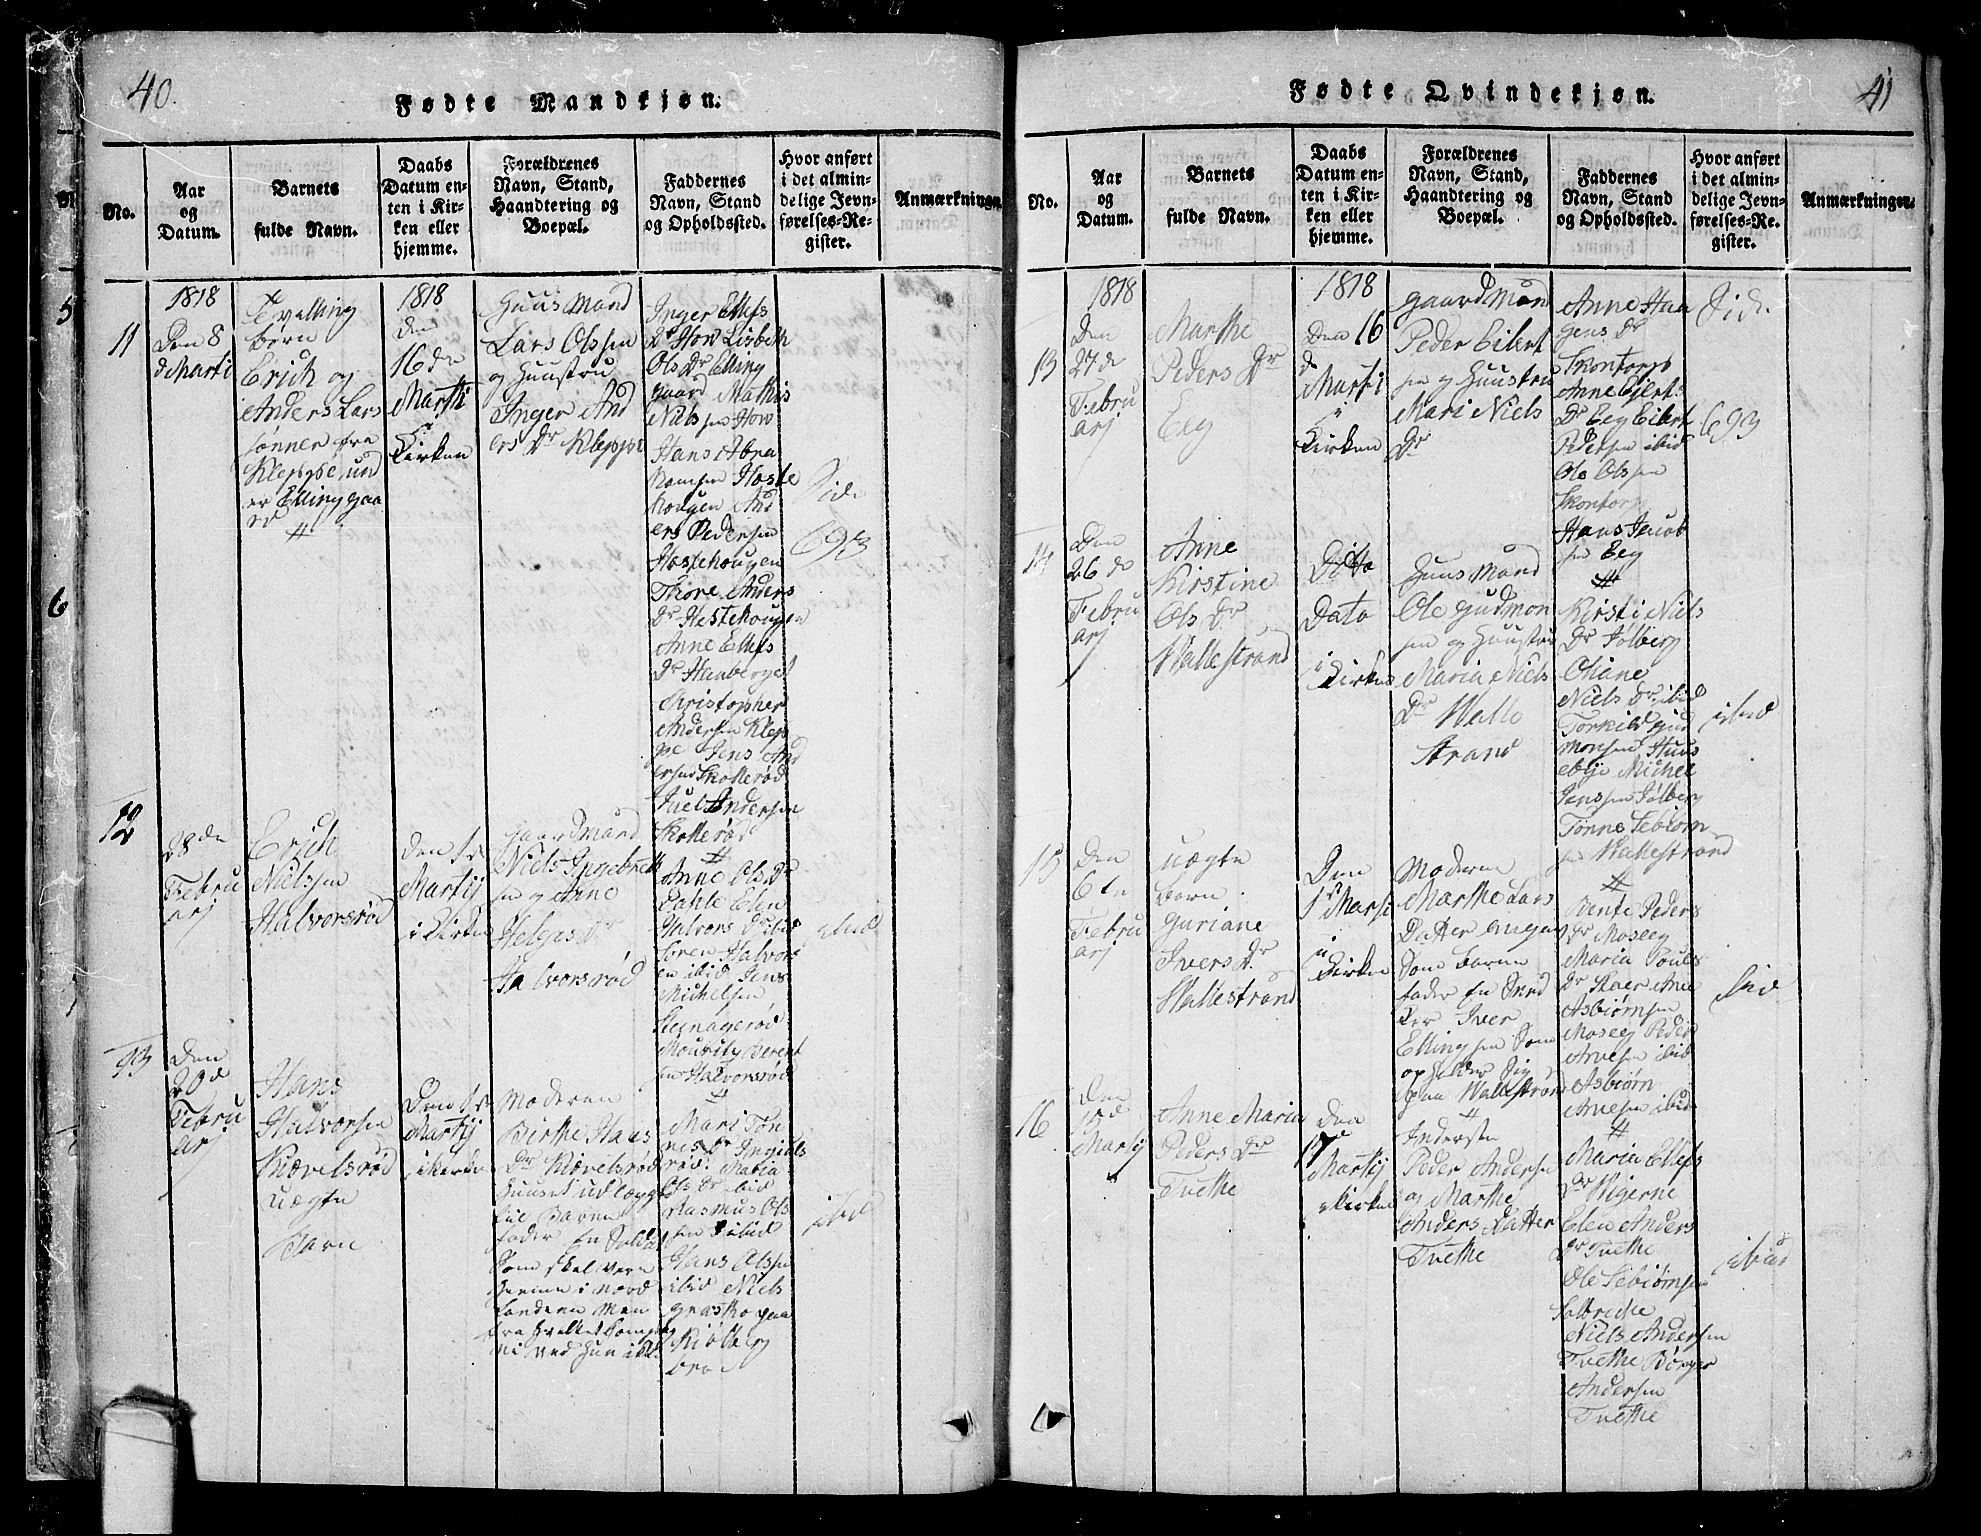 40.
Fødte Mandkjøn.
No.
Aar
og
Datum.
Barnets
fulde Navn.
Daabs
Datum en-
ten i Kir-
ken eller
hjemme.
Forældrenes
Navn, Stand,
Haandtering og
Boepæl.
Faddernes
Navn, Stand
og Opholdssted.
Hvor anført
i det almin-
delige Jevn-
førelses-Re-
gister.
Anmærkninger.
11
1818
Den 8
d Marti
Tvilling
børn
Erich og
Anders Lars
sønner fra
Kleppe und
er Ellinggaa
rd
1818
den
16 de
Marti
i
Kirken
Huusmand
Lars Olssen
og Huustru
Inger And
ers Dr Kleppe
Inger Ellefs
Dr Hov Lisbeth
Ols Dr Elling
gaard Mathis
Nielssen Hov
Hans Abra
hamsen Heste
hougen And
ers Pedersen
Hestehougen
Thore Anders
Dr Hestehougen
Anne Ellefs
Dr Hauberget
Christopher
Andersen Klep
pe Jens And
ersen Skotterød
Juel Andersen
Skotterød
Side
693
12
28 de
Febru
arj
Erich
Nielssen
Halvorsrød
Den 1ste
Martij
i Kirken
Gaardmand
Niels Ingebreth
sen og Anne
Helges Dr
Halvorsrød
Anne Ols Dr
Dahle Elen
Halvors Dr ibid
Søren Halvors
en ibid Jens
Michelsen
Stenagerød
Mouritz Berent
sen Halvorsrød
ibid
13
Den
20 d
Febru
arj
Hans
Halvorsen
Kiævelsrød
uægte
Barn
Den 1ste
Martij
i Kirken
Moderen
Birthe Hans
Dr Kiævelsrød
Huuset udlægger
til Barne
fader En Soldat
Som skal være
hiemme i Nord
landene Men
fra hvilket Compag
ni ved Hun ikke
Mari Tøn
nes Dr Ingiels
rød Maria
Ols Dr ibid
Rasmus Ols
sen ibid
Hans Olssen
ibid Niels
Græsko paa
Kiølberg
bro
ibid
41
Fødte Qvindekjøn.
No.
Aar
og
Datum.
Barnets
fulde Navn.
Daabs
Datum en-
ten i Kir-
ken eller
hjemme.
Forældrenes
Navn, Stand,
Haandtering og
Boepæl.
Faddernes
Navn, Stand
og Opholdssted.
Hvor anført
i det almin-
delige Jevn-
førelses-Re-
gister.
Anmærkninger.
13
1818
Den
27 de
Febru
arj
Marthe
Peders Dr
Eeg
1818
Den 16
d
Marti
i
Kirken
Gaardmand
Peder Eilert
sen og Huustru
Mari Niels
Dr
Anne Haa
gens Dr
Skontorp
Anne Eilerts
Dr Eeg Eilert
Pedersen ibid
Ole Olssen
Skontorp
Hans Jacob
sen Eeg
Side
693
14
Den
26 de
Febru
arj
Anne
Kirstine
Ols Dr
Wallestrand
Ditto
Dato
i
Kirken
Huusmand
Ole Gudmon
sen og Huustru
Maria Niels
Dr Walle
strand
Kirsti Niels
Dr Jølberg
Oliane
Niels Dr ibid
Torkild Gud
monsen Huus
ebye Michel
Jenssen Jølberg
Tønne Sebiørn
sen Wallestrand
ibid
15
Den
6 te
Febru
arj
uægte
barn
Guriane
Ivers Dr
Wallestrand
Den
1ste Marti
i
Kirken
Moderen
Marthe Lars
Datter
Som Barne
fader
Iver
Ellingsen Som
opholder Sig
paa Wallestrand
Bente Peders
Dr Moseeg
Maria Pouls
Dr Skaer Arne
Asbiørnsen
Moseeg Peder
Arnesen ibid
Asbiørn
Arnesen ibid
ibid
16
Den
15 d
Martij
Anne Maria
Peders Dr
Tvethe
Den
17
Martij
i Kirken
Inderste
Peder Andersen
og Marthe
Anders Datter
Tvethe
Maria Ellefs
Dr Wigerne
Elen Anders
Dr Tvethe
Ole Sebiørnsen
Niels Andersen
Tvethe Børger
Andersen
Tvethe
ibid